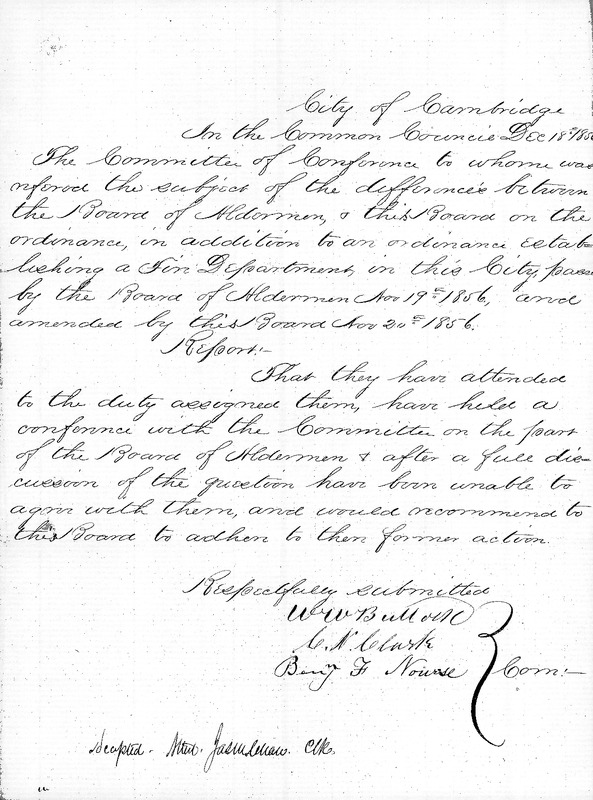 City of Cambridge
In the Common Council Dec 18th 1856
The Committee of Conference to whome was
refered the subject of the differences between
the Board of Aldermen, & this Board on the
ordinance, in addition to an ordinance estab-
lishing a Fire Department, in this City, passe
by the Board of Aldermen Nov 19th 1856, and
amended by this Board Nov 20th 1856.
Report:-
That they have attended
to the duty assigned them, have held a
conference with the Committee on the part
of the Board of Aldermen & after a full dis-
cussion of the question have been unable to
agree with them, and would recommend to
this Board to adhere to their former action.
Respectfully submitted
W W Bullock
C. N. Clark
Benj F Nourse
Com:-
Accepted. Attest. Clk.